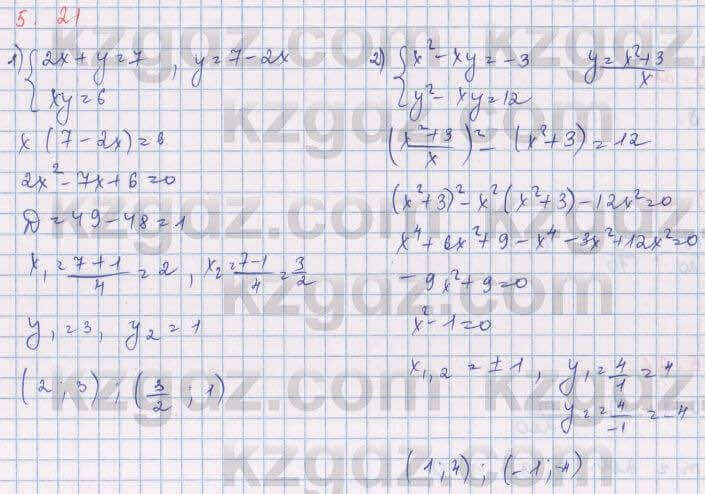 5. 21
1) { 2x + y = 7 , y = 7 - 2x
xy = 6
x (7 - 2x) = 6
2x² - 7x + 6 = 0
D = 49 - 48 = 1
x₁ = (7+1)/4 = 2 , x₂ = (7-1)/4 = 3/2
y₁ = 3, y₂ = 1
(2 ; 3) ; (3/2 ; 1)
2) { x² - xy = -3 y = (x²+3)/x
y² - xy = 12
((x²+3)/x)² - (x²+3) = 12
(x²+3)² - x²(x²+3) - 12x² = 0
x⁴ + 6x² + 9 - x⁴ - 3x² + 12x² = 0
-9x² + 9 = 0
x² - 1 = 0
x₁,₂ = ±1 , y₁ = 4/1 = 4
y₂ = 4/-1 = -4
(1; 4) ; (-1; -4)
kzgdz.com